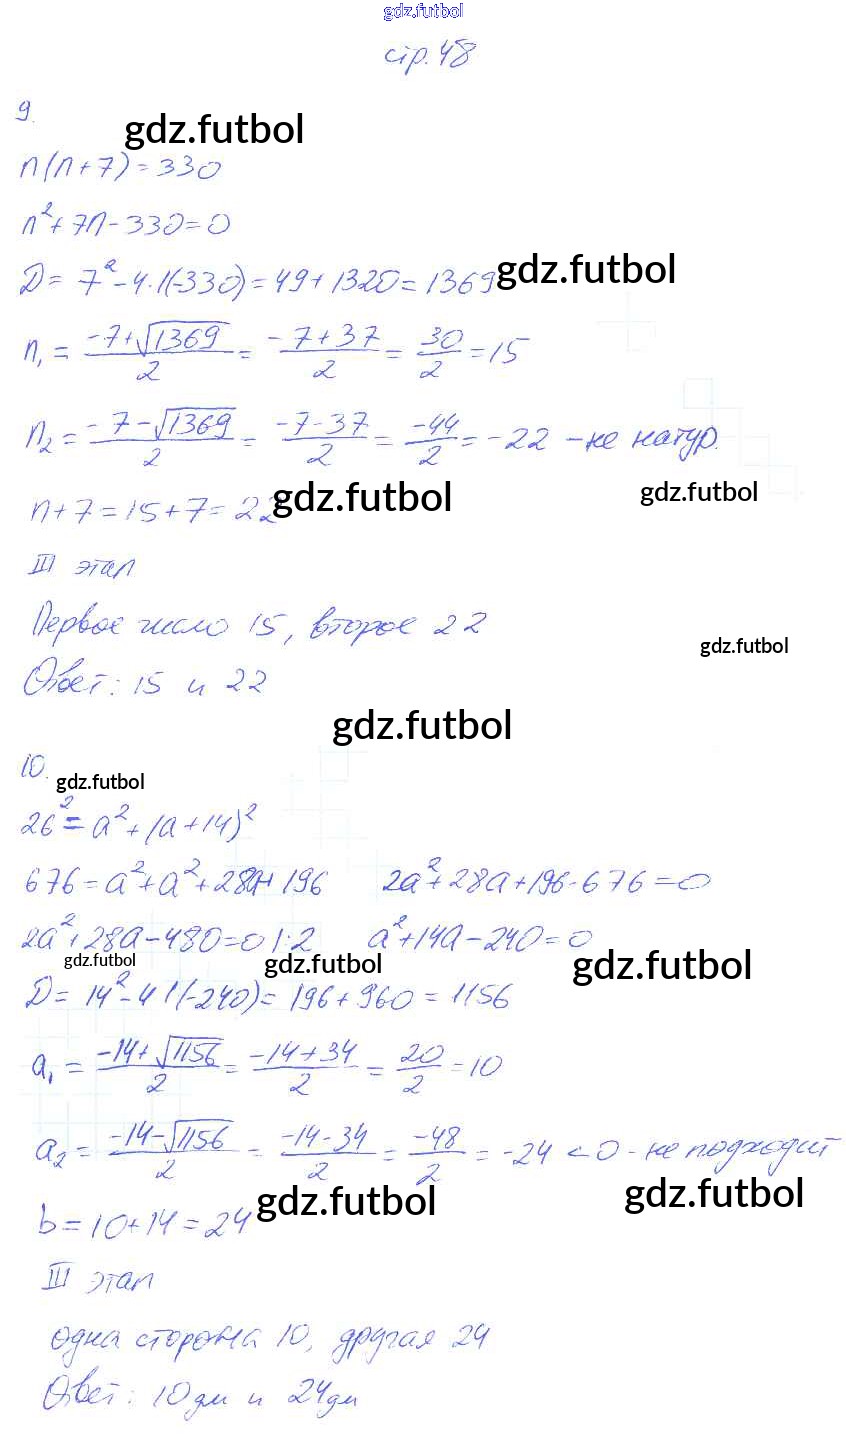 gdz.futbol
стр. 48
9.
gdz.futbol
n(n+7)=330
n²+7n-330=0
D= 7²-4·1(-330)=49+1320=1369 gdz.futbol
n₁ = (-7+√1369)/2 = (-7+37)/2 = 30/2 = 15
n₂ = (-7-√1369)/2 = (-7-37)/2 = -44/2 = -22 - не натур.
n+7=15+7=22 gdz.futbol gdz.futbol
III этап
Первое число 15, второе 22
gdz.futbol
Ответ: 15 и 22
gdz.futbol
10.
gdz.futbol
26²=a²+(a+14)²
676=a²+a²+28a+196 2a²+28a+196-676=0
2a²+28a-480=0 |:2 a²+14a-240=0
gdz.futbol gdz.futbol gdz.futbol
D= 14²-4·1(-240)=196+960=1156
a₁ = (-14+√1156)/2 = (-14+34)/2 = 20/2 = 10
a₂ = (-14-√1156)/2 = (-14-34)/2 = -48/2 = -24 <0 - не подходит
b=10+14=24 gdz.futbol gdz.futbol
III этап
одна сторона 10, другая 24
Ответ: 10дм и 24дм